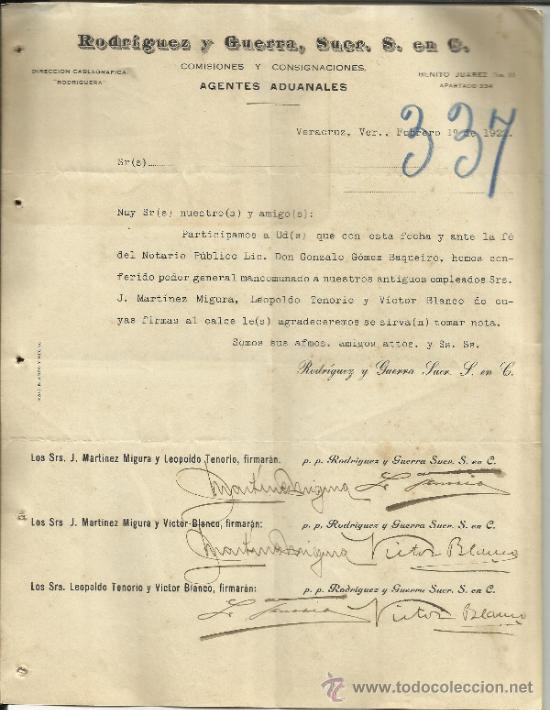 Rodríguez y Guerra, Sucr. S. en C.
COMISIONES Y CONSIGNACIONES.
DIRECCION CABLEGRAFICA
"RODRIGUERA"
AGENTES ADUANALES
BENITO JUAREZ
APARTADO 234
Veracruz, Ver., Febrero 1º de 1922.
337
Sr(s)
Muy Sr(s) nuestro(s) y amigo(s):
Participamos a Ud(s) que con esta fecha y ante la fé
del Notario Público Lic. Don Gonzalo Gómez Baqueiro, hemos con-
ferido poder general mancomunado a nuestros antiguos empleados Srs.
J. Martínez Migura, Leopoldo Tenorio y Víctor Blanco de cu-
yas firmas al calce le(s) agradeceremos se sirva(n) tomar nota.
Somos sus afmos. amigos attos. y Ss. Ss.
Rodríguez y Guerra Sucr. S. en C.
Los Srs. J. Martínez Migura y Leopoldo Tenorio, firmarán.
p. p. Rodríguez y Guerra Sucr. S. en C.
Martinez Migura L. Tenorio
Los Srs. J. Martínez Migura y Víctor Blanco, firmarán:
p. p. Rodríguez y Guerra Sucr. S. en C.
Martinez Migura Victor Blanco
Los Srs. Leopoldo Tenorio y Víctor Blanco, firmarán:
p. p. Rodríguez y Guerra Sucr. S. en C.
L. Tenorio Victor Blanco
www.todocoleccion.net